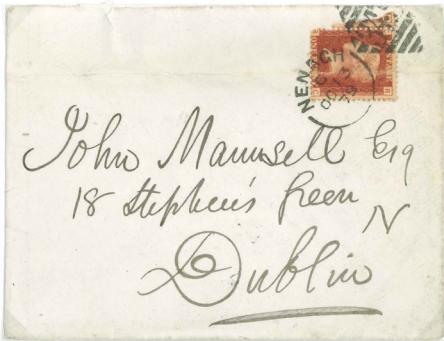 NENAGH
C
OC 13
79
John Maunsell Esq
18 Stephen's Green
N
Dublin